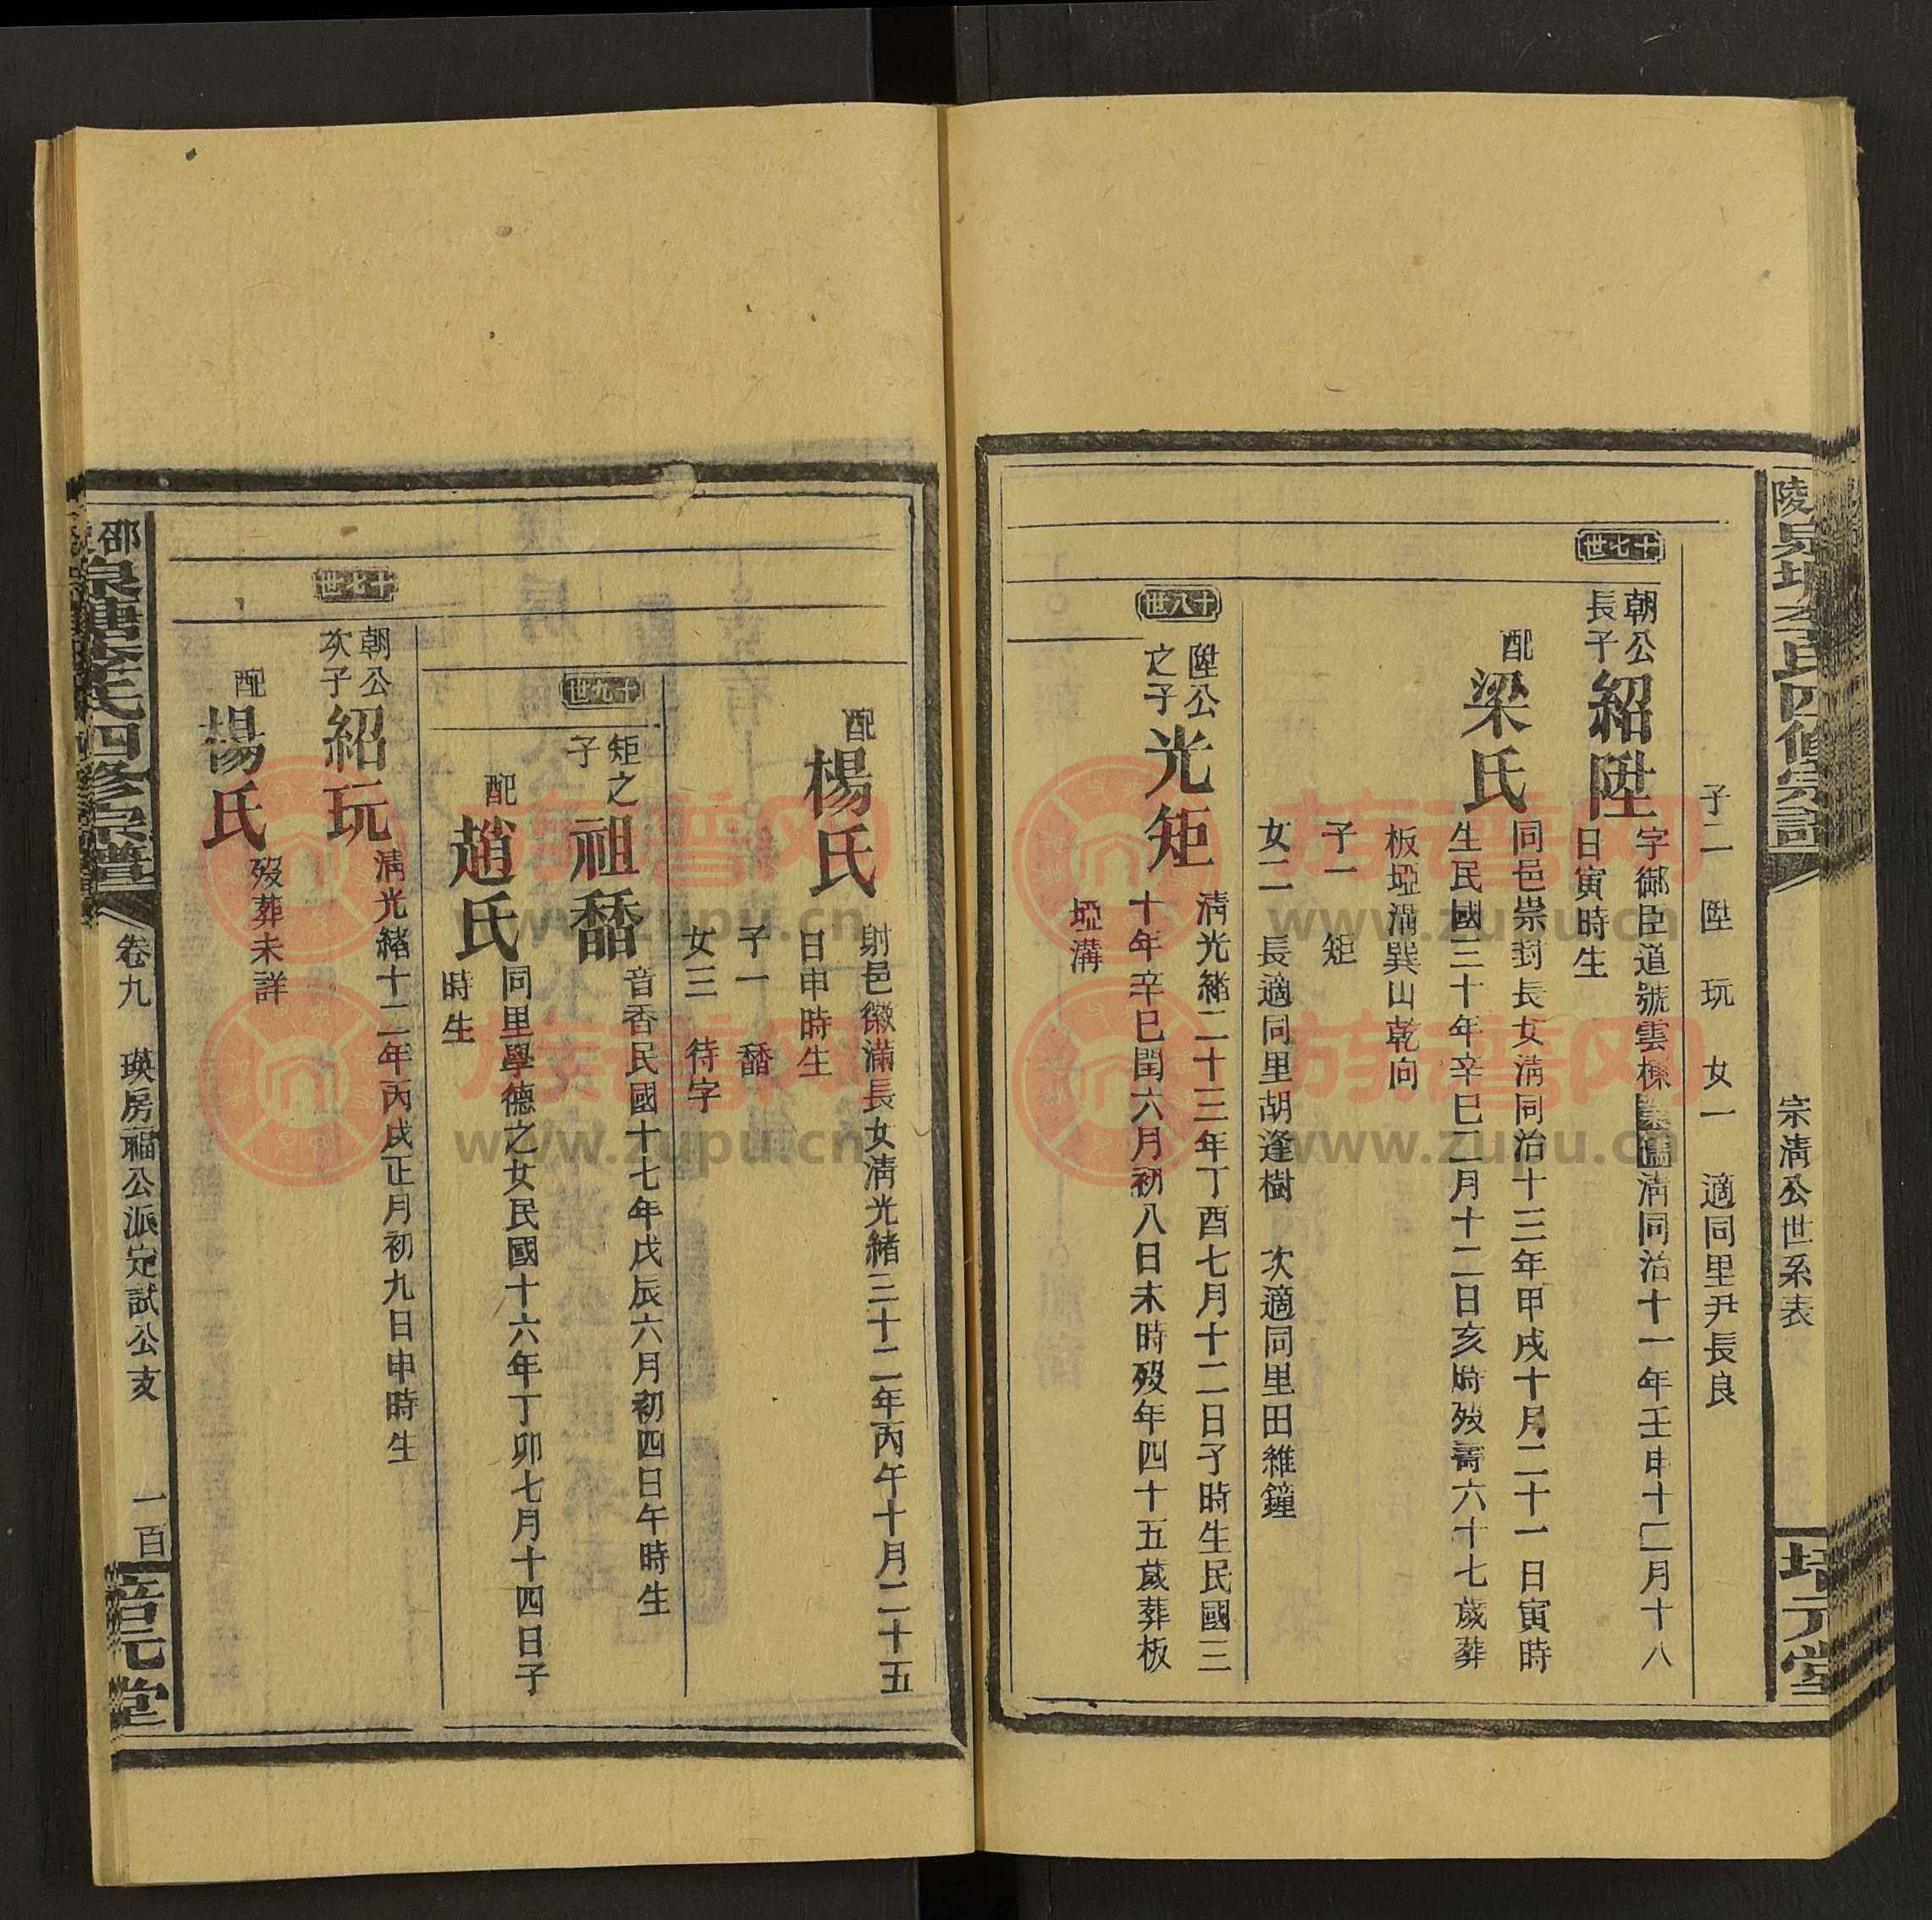 宗淸公世系表
堂
子二　陞　玩　女一　適同里尹長良
十七世
朝公
長子
紹陞
字御臣道號雲
淸同治十一年壬申十二月十八
日寅時生
配
梁氏
同邑崇封長女淸同治十三年甲戌十月二十一日寅時
生民國三十年辛巳二月十二日亥時歿壽六十七歲葬
板埡溝巽山乾向
子一　矩
女二　長適同里胡逢樹　次適同里田維鐘
十八世
陞公
之子
光矩
淸光緒二十三年丁酉七月十二日子時生民國三
十年辛巳閏六月初八日未時歿年四十五歲葬板
埡溝
配
楊氏
射邑徽滿長女淸光緒三十二年丙午十月二十五
日申時生
子一
女三　待字
十九世
矩之
子
祖
音香民國十七年戊辰六月初四日午時生
配
趙氏
同里學德之女民國十六年丁卯七月十四日子
時生
十七世
朝公
次子
紹玩
淸光緒十二年丙戌正月初九日申時生
配
楊氏
歿葬未詳
氏四修宗譜
卷九　瑛房福公派定試公支　一百
元堂
族谱网
www.zupu.cn
族谱网
www.zupu.cn
族谱网
www.zupu.cn
族谱网
www.zupu.cn